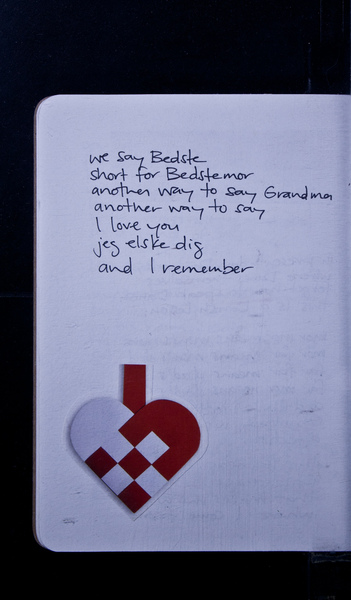 we say Bedste
short for Bedstemor
another way to say Grandma
another way to say
I love you
jeg elske dig
and I remember